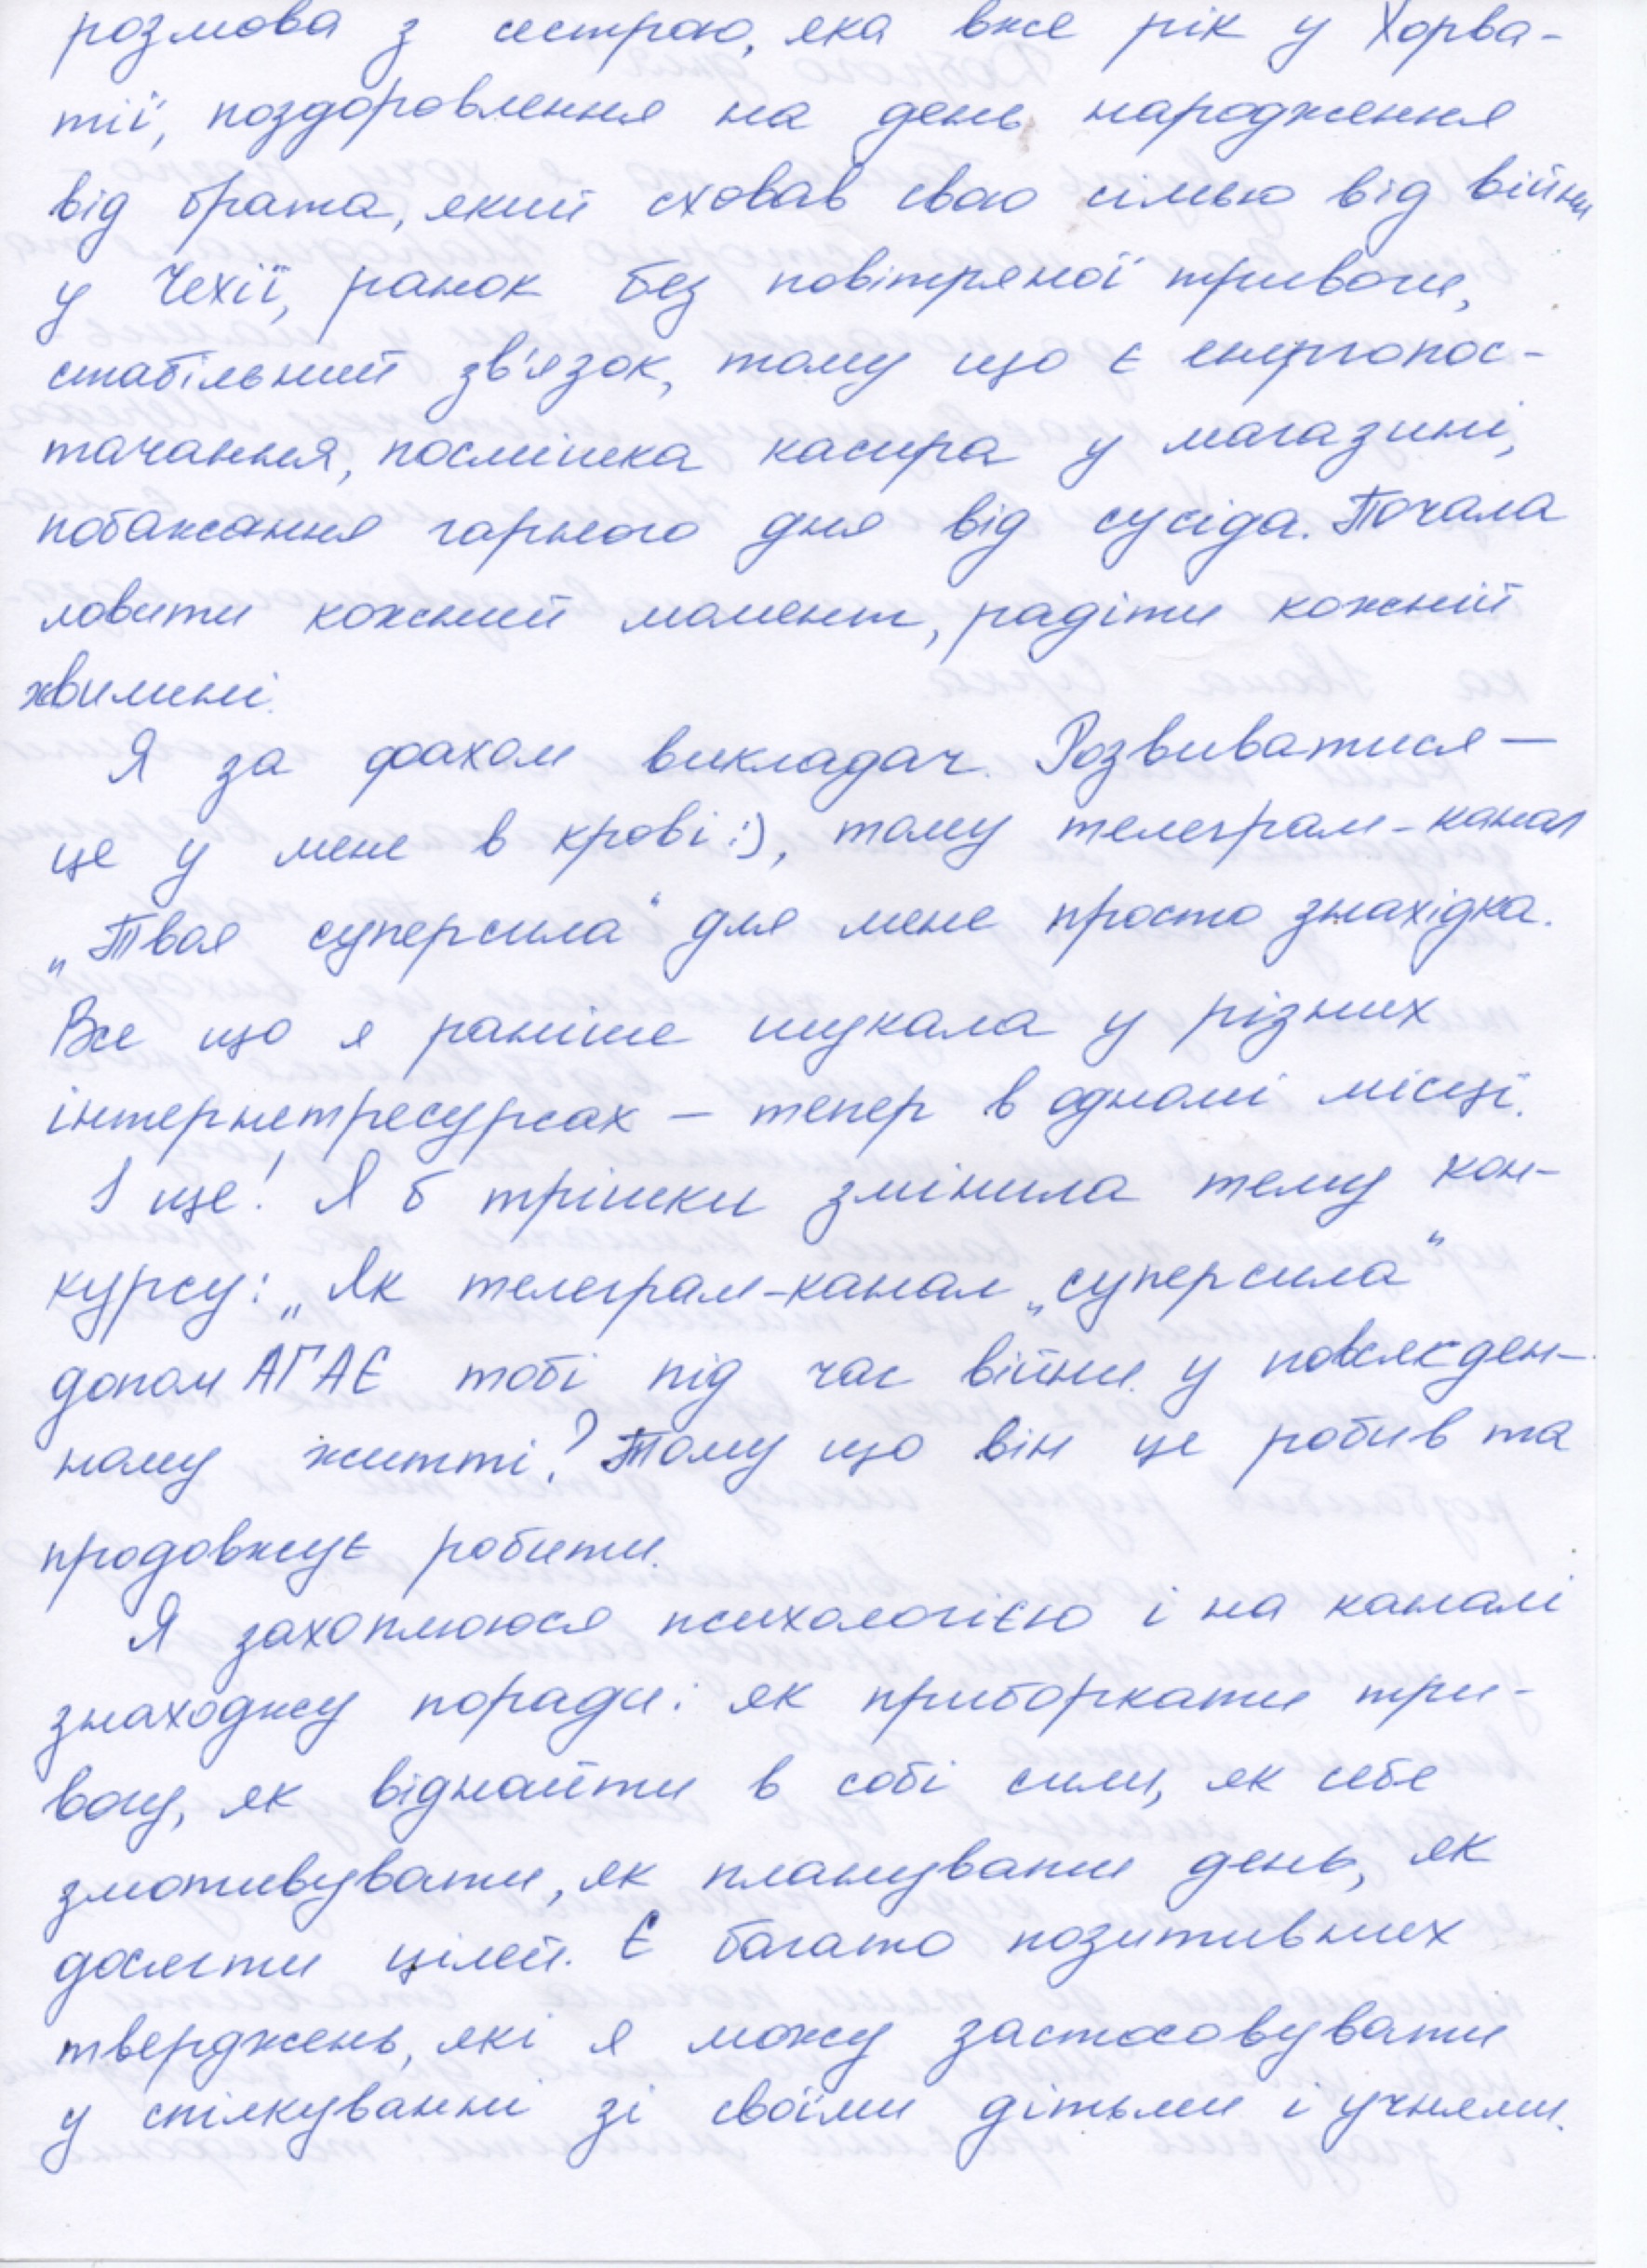 розмова з сестрою, яка вже рік у Хорва-
тії, поздоровлення на день народження
від брата, який сховав свою сім'ю від війни
у Чехії, ранок без повітряної тривоги,
стабільний зв'язок, тому що є енергопос-
тачання, посмішка касира у магазині,
побажання гарного дня від сусіда. Почала
ловити кожний момент, радіти кожній
хвилині.
Я за фахом викладач. Розвиватися —
це у мене в крові :), тому телеграм-канал
„Твоя суперсила“ для мене просто знахідка.
Все що я раніше шукала у різних
інтернетресурсах — тепер в одномі місці.
І ще! Я б трішки змінила тему кон-
курсу: „Як телеграм-канал „суперсила“
допомАГАЄ тобі під час війни у повсякден-
ному житті? Тому що він це робив та
продовжує робити.
Я захоплююся психологією і на каналі
знаходжу поради: як приборкати три-
вогу, як віднайти в собі сили, як себе
змотивувати, як планувати день, як
досягти цілей. Є багато позитивних
тверджень, які я можу застосовувати
у спілкуванні зі своїми дітьми і учнями.